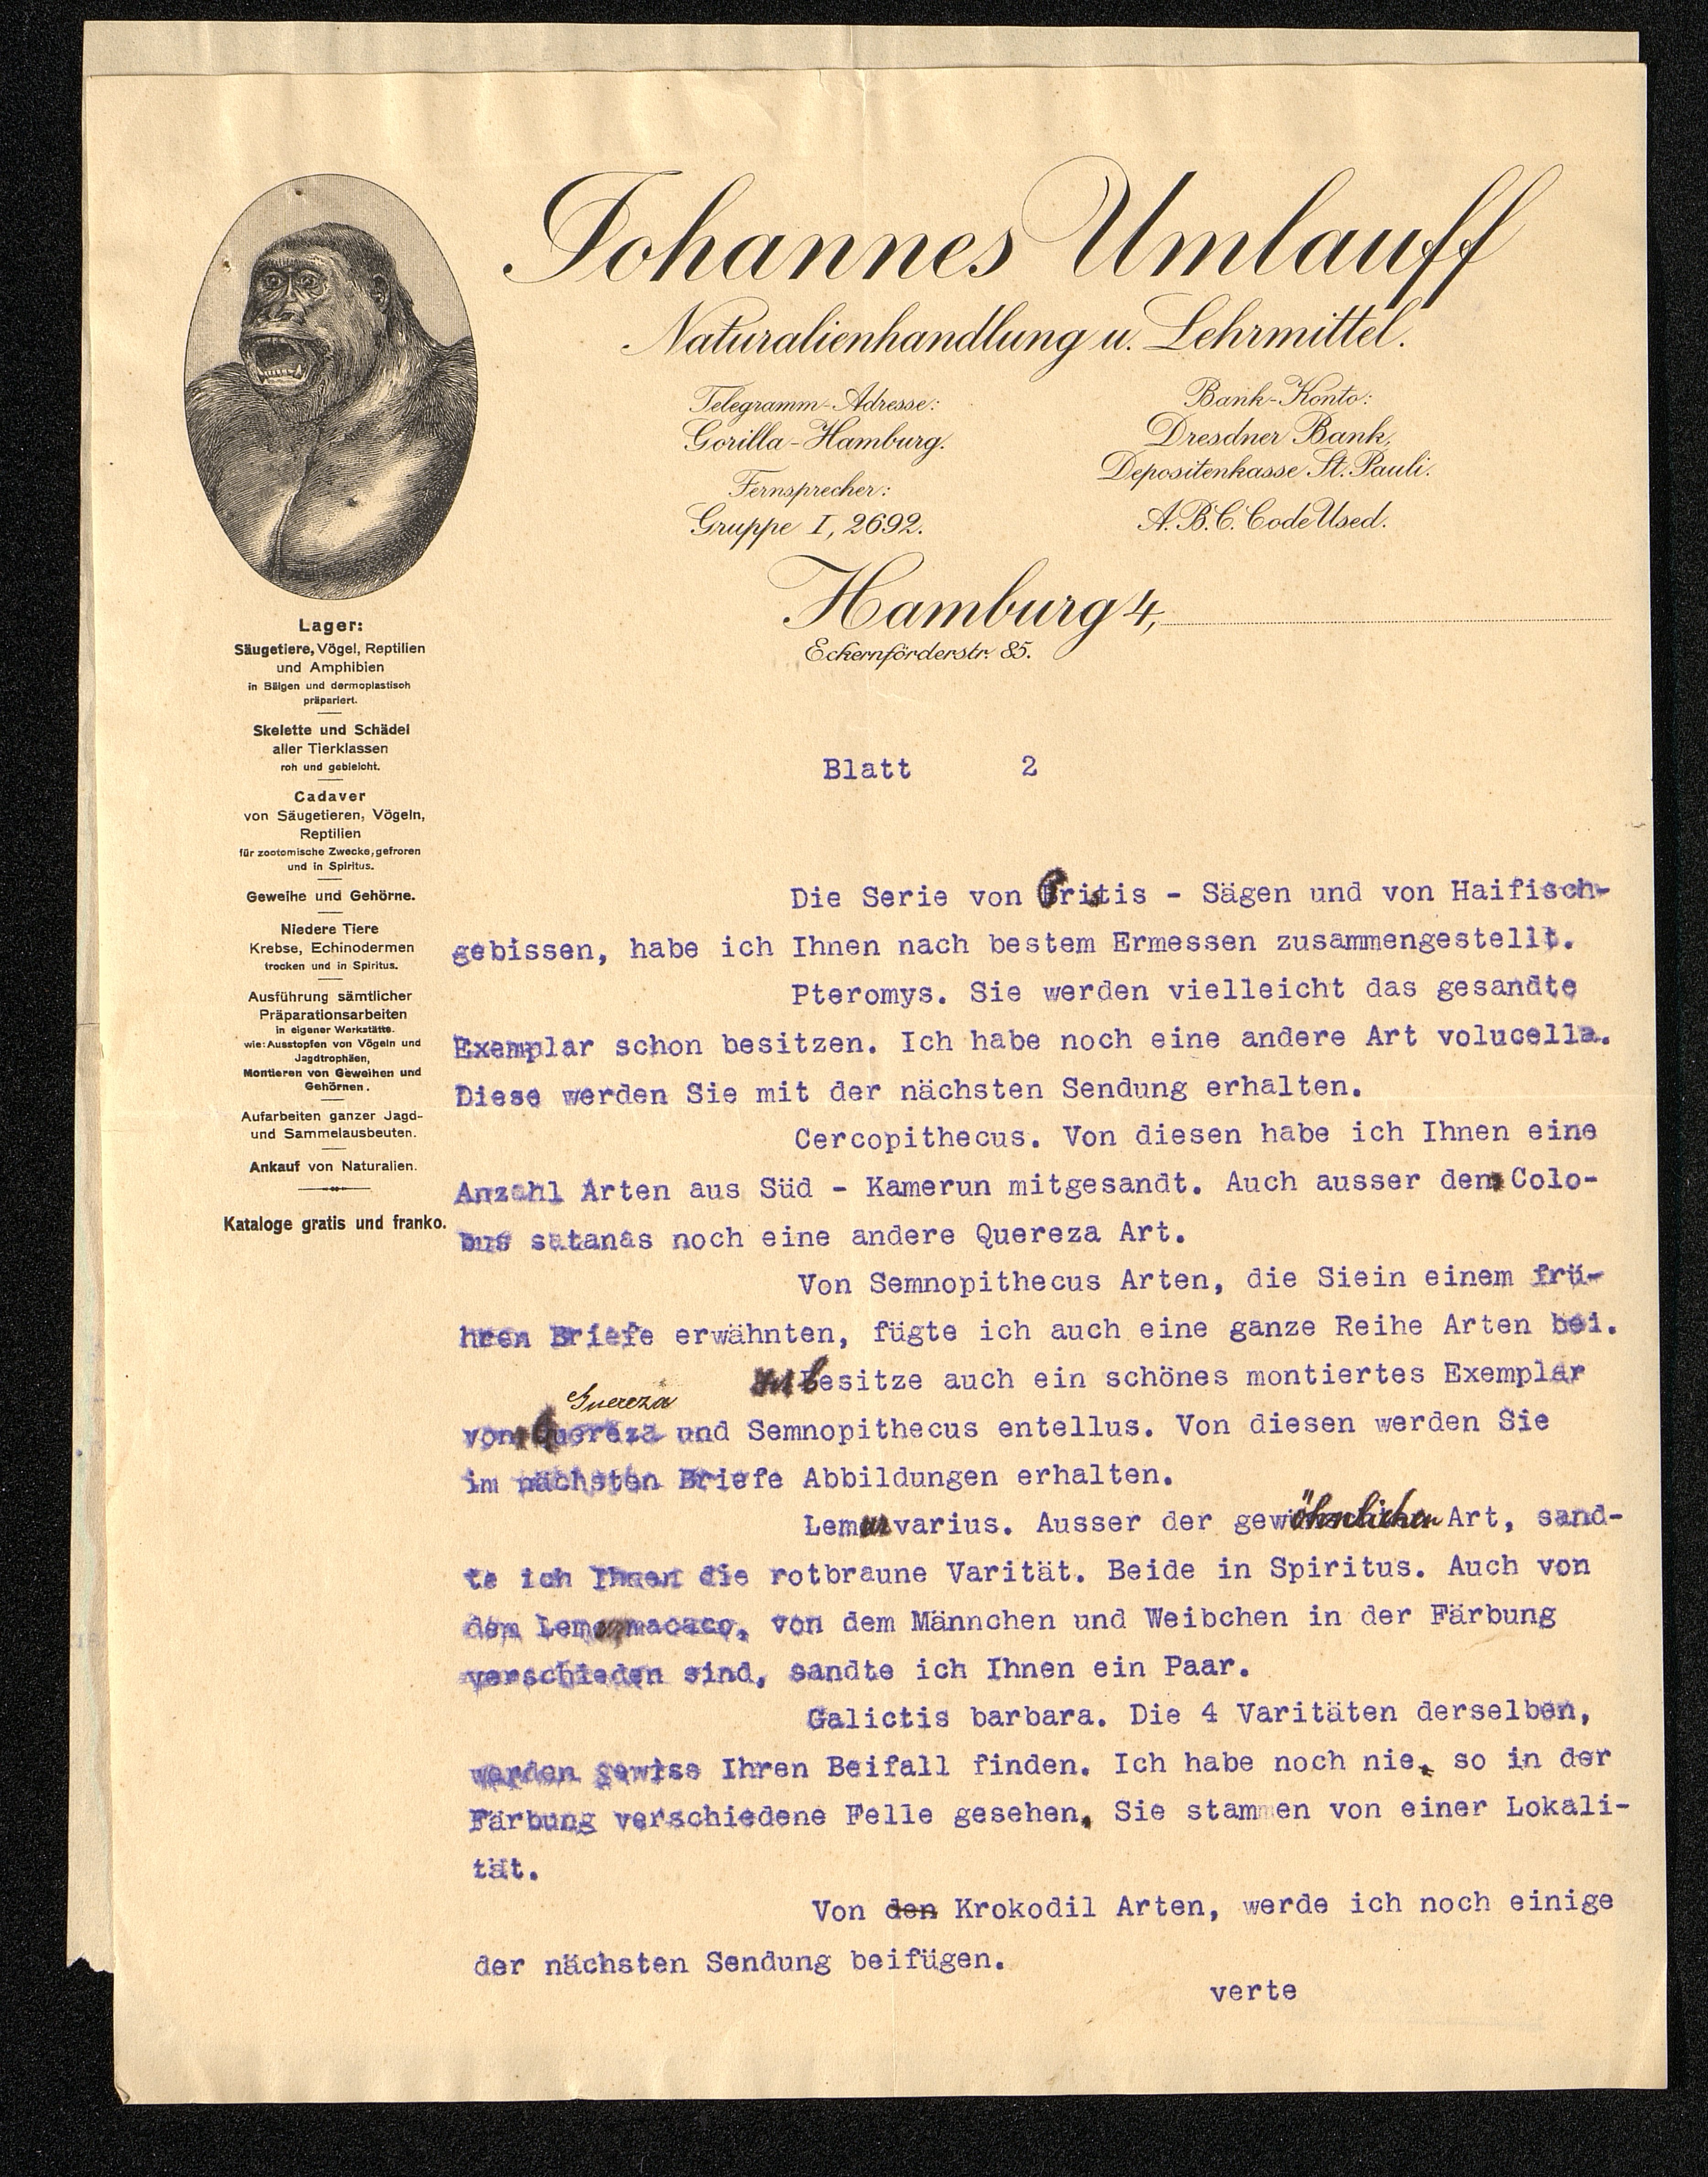 Johannes Umlauff
Naturalienhandlung u. Lehrmittel.
Telegramm-Adresse:
Gorilla-Hamburg.
Fernsprecher:
Gruppe I, 2692.
Bank-Konto:
Dresdner Bank,
Depositenkasse St. Pauli.
A.B.C. Code Used.
Hamburg 4,
Eckernförderstr. 85.
Lager:
Säugetiere, Vögel, Reptilien
und Amphibien
in Bälgen und dermoplastisch
präpariert.
Skelette und Schädel
aller Tierklassen
roh und gebleicht.
Cadaver
von Säugetieren, Vögeln,
Reptilien
für zootomische Zwecke, gefroren
und in Spiritus.
Geweihe und Gehörne.
Niedere Tiere
Krebse, Echinodermen
trocken und in Spiritus.
Ausführung sämtlicher
Präparationsarbeiten
in eigener Werkstätte.
wie: Ausstopfen von Vögeln und
Jagdtrophäen,
Montieren von Geweihen und
Gehörnen.
Aufarbeiten ganzer Jagd-
und Sammelausbeuten.
Ankauf von Naturalien.
Kataloge gratis und franko.
Blatt 2
Die Serie von - Sägen und von Haifisch-
gebissen, habe ich Ihnen nach bestem Ermessen zusammengestellt.
Pteromys. Sie werden vielleicht das gesandte
Exemplar schon besitzen. Ich habe noch eine andere Art volucella.
Diese werden Sie mit der nächsten Sendung erhalten.
Cercopithecus. Von diesen habe ich Ihnen eine
Anzahl Arten aus Süd - Kamerun mitgesandt. Auch ausser dem Colo-
bus satanas noch eine andere Quereza Art.
Von Semnopithecus Arten, die Siein einem frü-
hren Briefe erwähnten, fügte ich auch eine ganze Reihe Arten bei.
besitze auch ein schönes montiertes Exemplar
Guereza
von Quereza und Semnopithecus entellus. Von diesen werden Sie
im nächsten Briefe Abbildungen erhalten.
Lemur varius. Ausser der gewöhnlichen Art, sand-
te ich Ihnen die rotbraune Varität. Beide in Spiritus. Auch von
dem Lemur macaco, von dem Männchen und Weibchen in der Färbung
verschieden sind, sandte ich Ihnen ein Paar.
Galictis barbara. Die 4 Varitäten derselben,
werden gewiss Ihren Beifall finden. Ich habe noch nie, so in der
Färbung verschiedene Felle gesehen, Sie stammen von einer Lokali-
tät.
Von den Krokodil Arten, werde ich noch einige
der nächsten Sendung beifügen.
verte